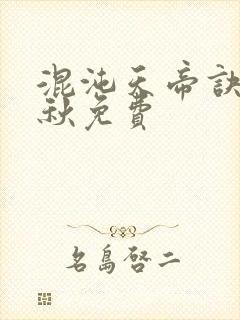 混沌天帝訣
秋免費
名島啓二